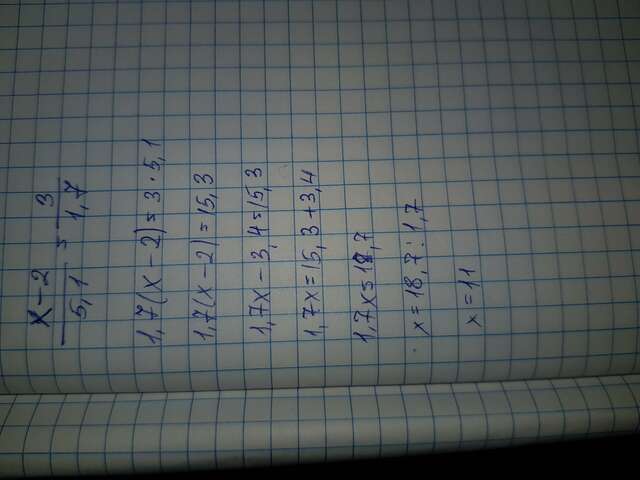 x-2/5,1 = 3/1,7
1,7(x-2)=3·5,1
1,7(x-2)=15,3
1,7x-3,4=15,3
1,7x=15,3+3,4
1,7x=18,7
x=18,7:1,7
x=11